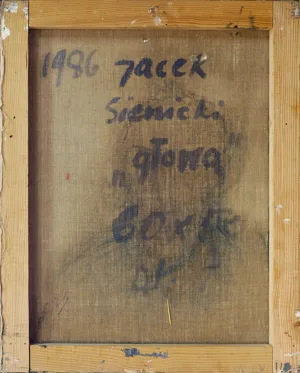 1986 Jacek
Sienicki
"głowa"
60x